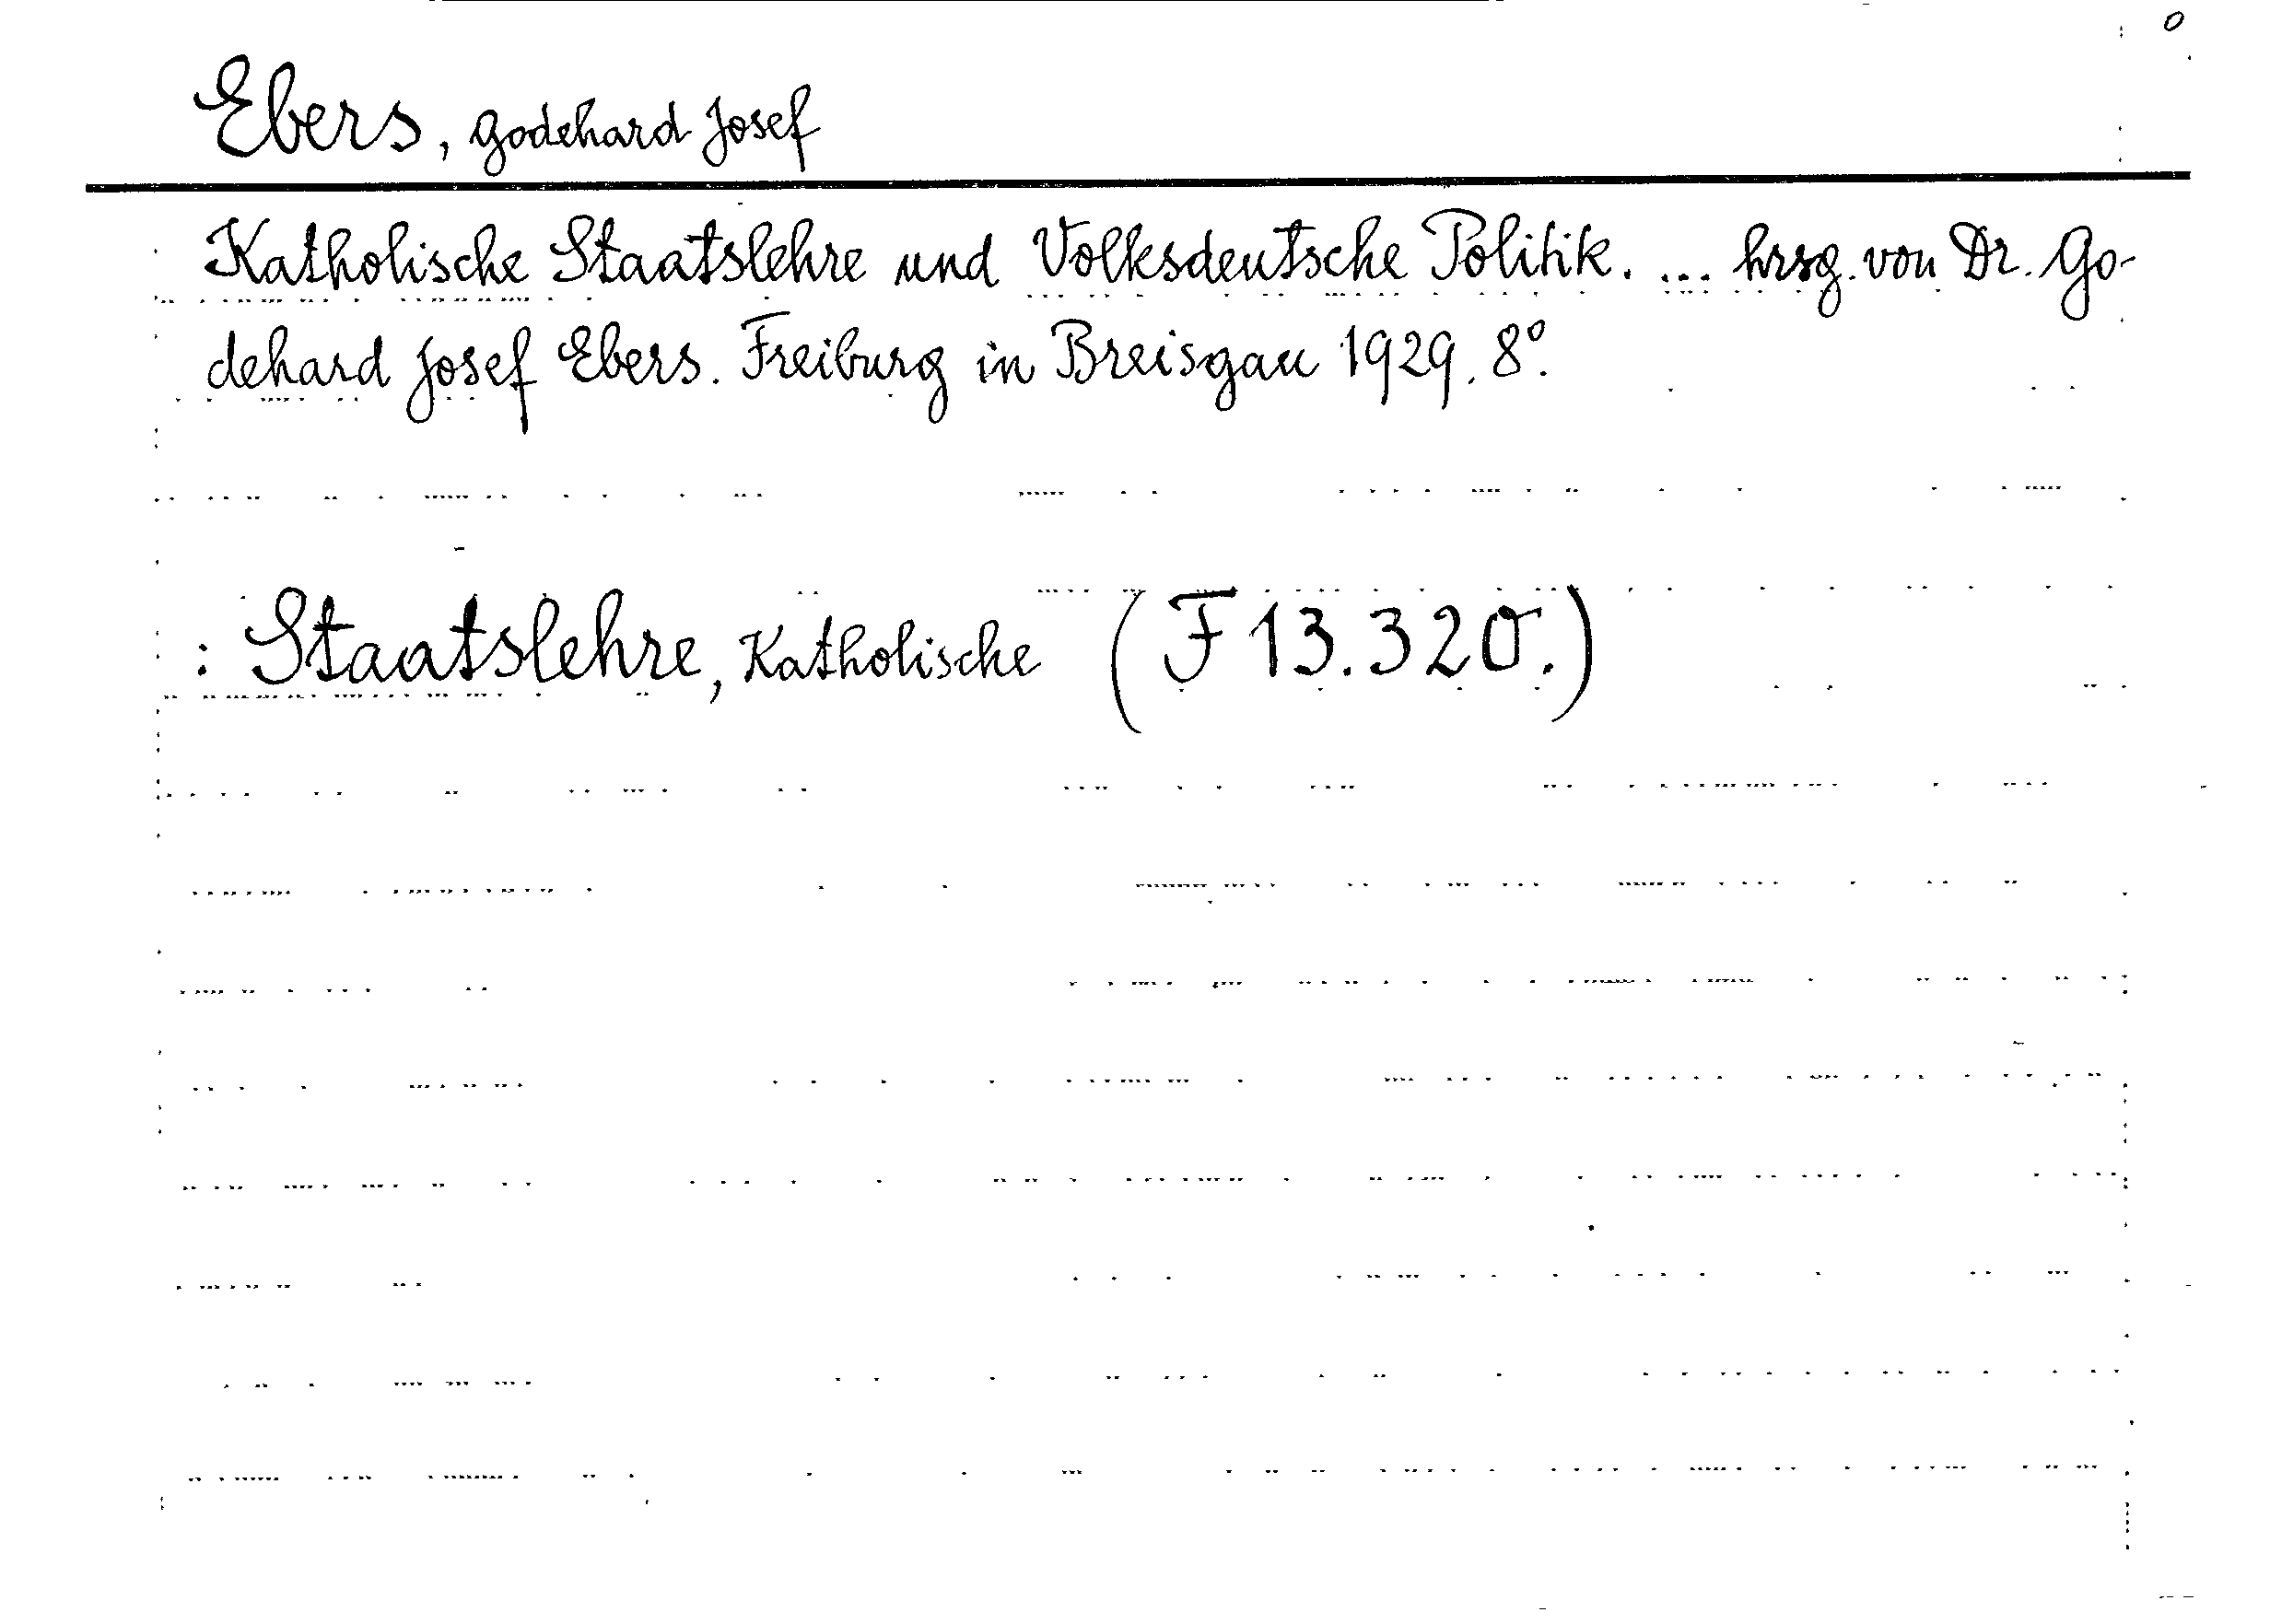 Ebers, Godehard Josef
Katholische Staatslehre und Volksdeutsche Politik. ... hrsg. von Dr. Go-
dehard Josef Ebers. Freiburg in Breisgau 1929. 8°.
: Staatslehre, Katholische (F 13.320.)